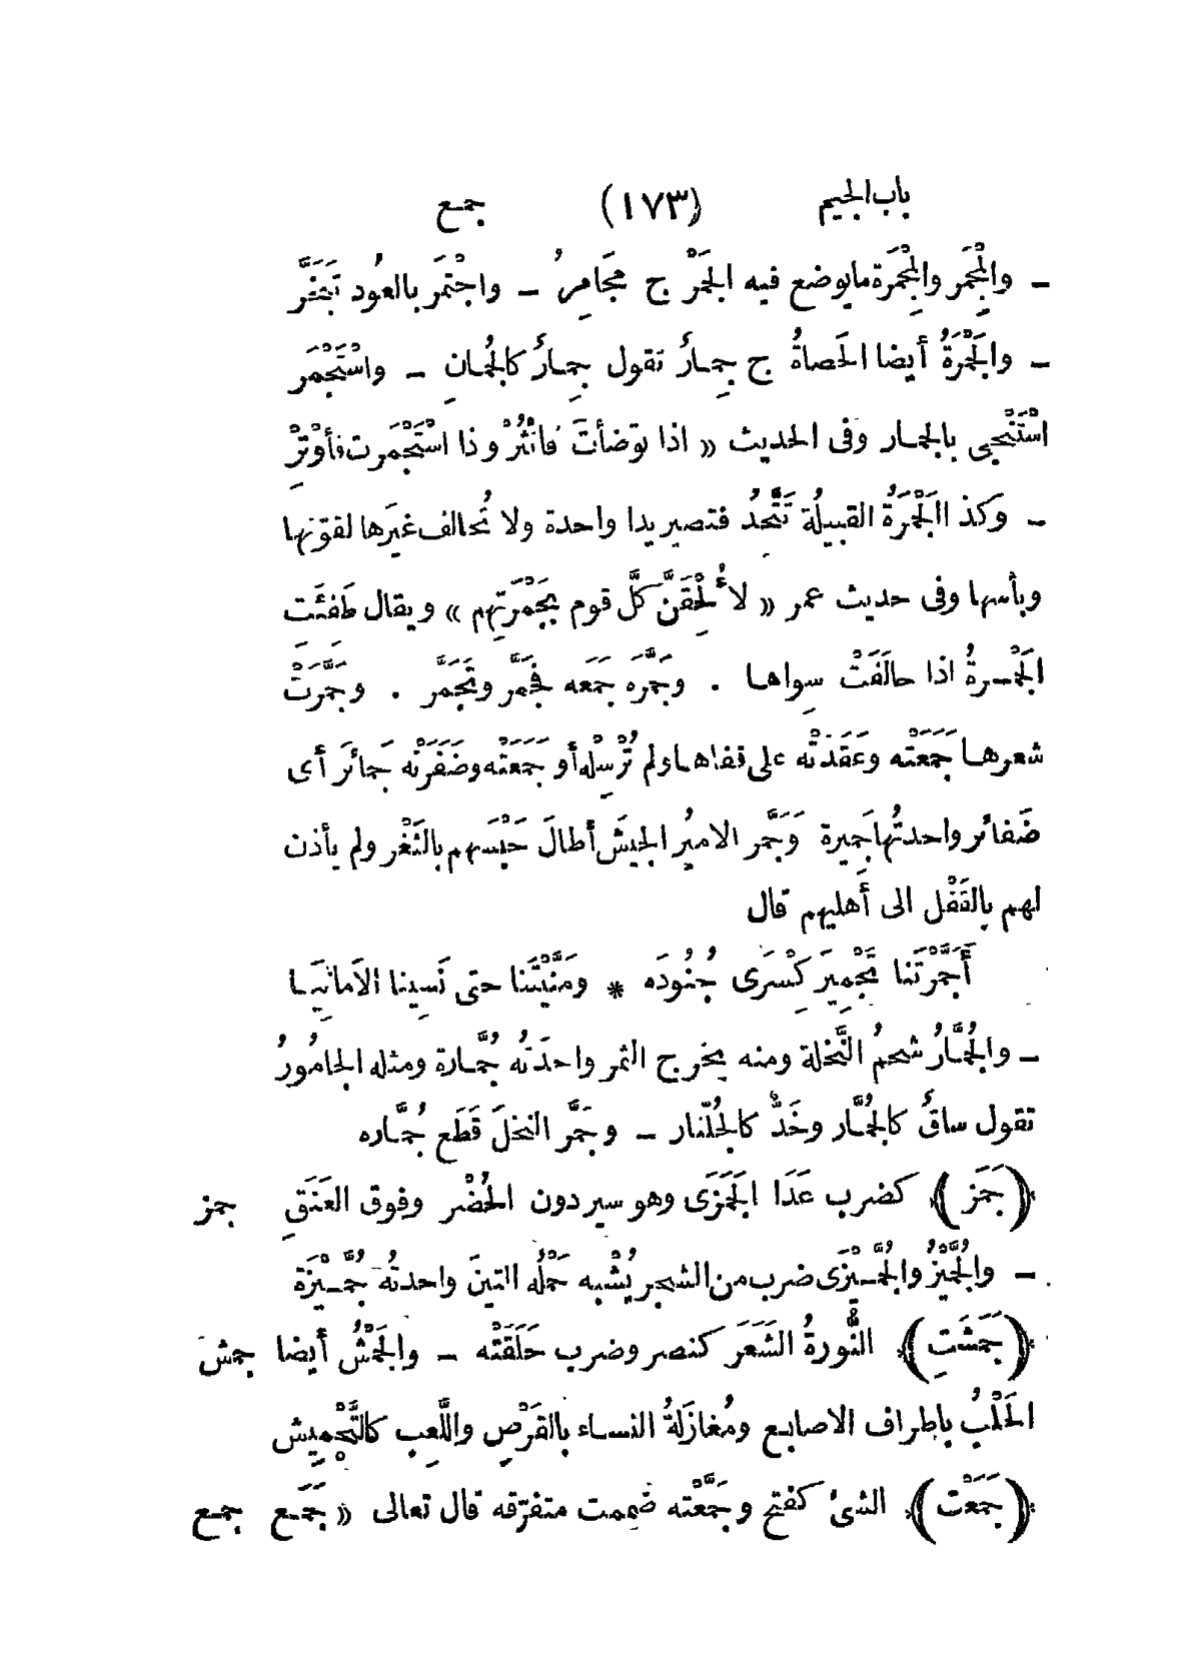 باب الجيم (١٧٣) جمع
ـ والمِجْمَر والمِجْمَرَة مايوضع فيه الجَمْرُ ج مَجَامِرُ ـ واجْتَمَر بالعُود تَجَمَّر
ـ والجَمْرَةُ أيضا الحَصاةُ ج جِمـارٌ تقول جِمـارٌ كالجُمـانِ ـ واسْتَجْمَر
اسْتَنْجى بالجمـار وفى الحديث « اذا توَضأتَ فانْثُرْ وذا اسْتَجْمَرت فأوْتِرْ
ـ وكذ االجَمْرَةُ القبيلُة تَتَّحِدُ فتصير يدا واحدة ولا تُحالف غيرَها لقوّتها
وبأسها وفى حديث عمر « لأُلْحِقَنَّ كلَّ قوم بجَمْرَتِهم » ويقال طَفِئَتِ
الجَمْـرةُ اذا حالَفَتْ سِواهـا . وجَمَّرَه جَمَعه فجَمَّر وتَجَمَّر . وجَمَّرَتْ
شعرهـا جَمَعَتْه وعَقَدَتْه على قفاهـا ولم تُرْسِلْه أو جَمَعَتْه وضَفَرَتْه جَمائرَ أى
ضَفائر واحدتُها جَمِيرة وَجَمَّر الاميرُ الجيشَ أطالَ حَبْسَهم بالثَغْر ولم يأذن
لهم بالقَفْل الى أَهليهم قال
أَجَمَّرْتَنا تَجْمِيرَ كِسْرَى جُنُودَه * ومَنَّيْتَنا حتى نَسِينا الاَمانِيَـا
ـ والجُمَّارُ شحمُ النَّخلة ومنه يخرج الثمر واحدَتُه جُمَّـارة ومثله الجامُورُ
تقول ساقٌ كالجُمَّار وخَدٌّ كالجُلّنار ـ وجَمَّر النخلَ قَطَع جُمَّـاره
﴿جَمَز﴾ كضرب عَدَا الجَمَزَى وهو سير دون الحُضْر وفوق العَنَقِ جمز
ـ والجُمَّيْزُ والجُمَّـيْزَى ضرب من الشجر يُشْبه حَمْلُه التينَ واحدتُه جُمَّـيْزَة
﴿جَمَشَتِ﴾ النُّورةُ الشَعَر كنصر وضرب حَلَقَتْه ـ والجَمْشُ أيضا جمش
الحَلْبُ باطراف الاصابـع ومُغازَلةُ النسـاء بالقَرْصِ واللَّعِب كالتَّجْمِيش
﴿جَمَعْت﴾ الشئ كفتح وجَمَّعْته ضممت متفرّقه قال تعالى « جَمَـع جمـع